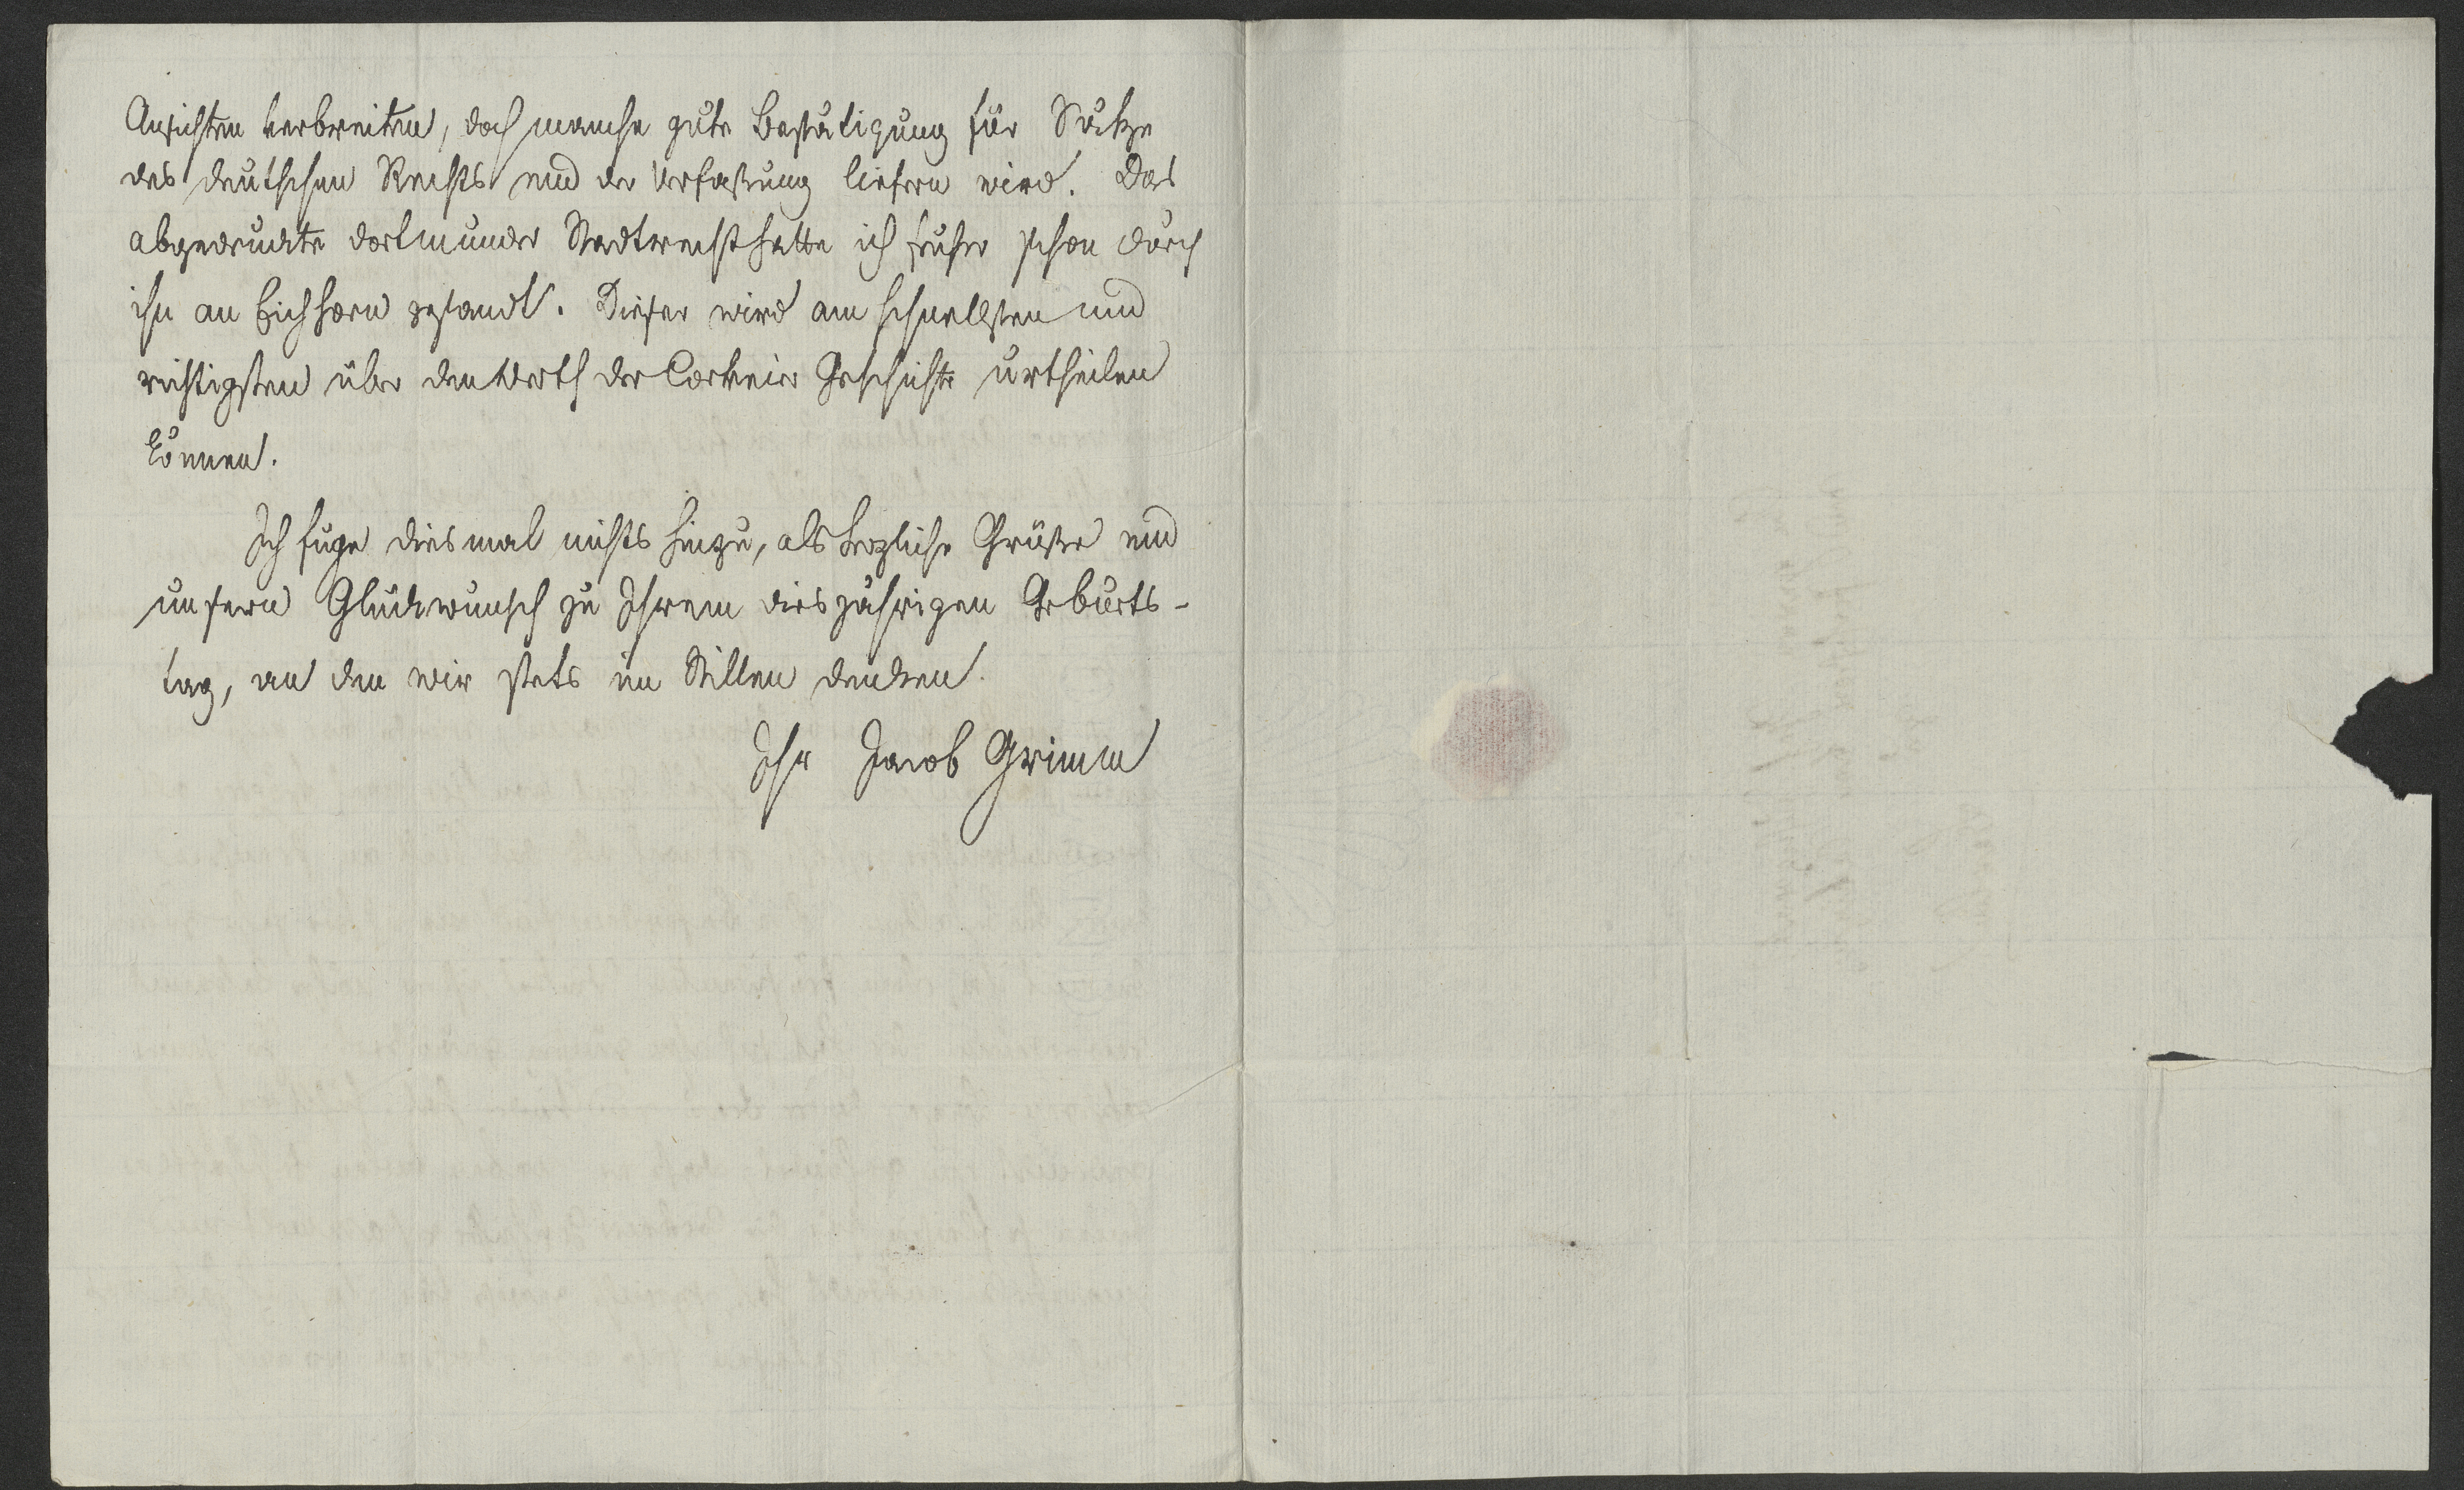 Ansichten verbreiten, doch manche gute Bestätigung für Sätze
des deutschen Rechts und der Verfaßung liefern wird. Das
abgedruckte dortmunder Stadtrecht hatte ich früher schon durch
ihn an Eichhorn gesandt. Dieser wird am schnellsten und
richtigsten über den Werth der Corveier Geschichte urtheilen
können.
Ich füge diesmal nichts hinzu, als herzliche Grüße und
unsern Glückwunsch zu Ihrem diesjährigen Geburts-
tag, an den wir stets im Stillen denken.
Ihr Jacob Grimm